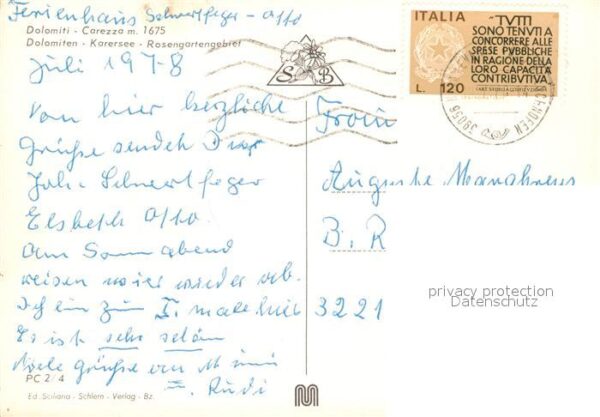 Ferienhaus Schwertfeger - Otto
Dolomiti - Carezza m. 1675
Dolomiten - Karersee - Rosengartengebiet
Juli 1978
Von hier herzliche
Grüsse senden Dir
Joh. Schwertfeger
Elsbeth Otto
Am Sonnabend
reisen wir wieder ab.
Ich bin zum I. mal hier
Es ist sehr schön
Viele Grüsse von Mimi
u. Rudi
PC 2/4
Ed. Siciliana - Schlern - Verlag - Bz.
S B
ITALIA
"TVTTI
SONO TENVTI A
CONCORRERE ALLE
SPESE PVBBLICHE
IN RAGIONE DELLA
LORO CAPACITÀ
CONTRIBVTIVA"
L. 120
39056
HOFEN
Frau
Auguste
B. R
3221
privacy protection
Datenschutz